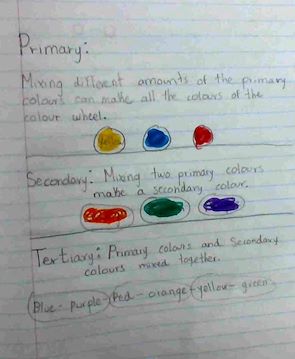 Primary:
Mixing different amounts of the primary
colours can make all the colours of the
colour wheel.
Yellow
Secondary: Mixing two primary colours
make a secondary colour.
Tertiary: Primary colours and secondary
colours mixed together.
Blue - purple - Red - orange - yellow - green